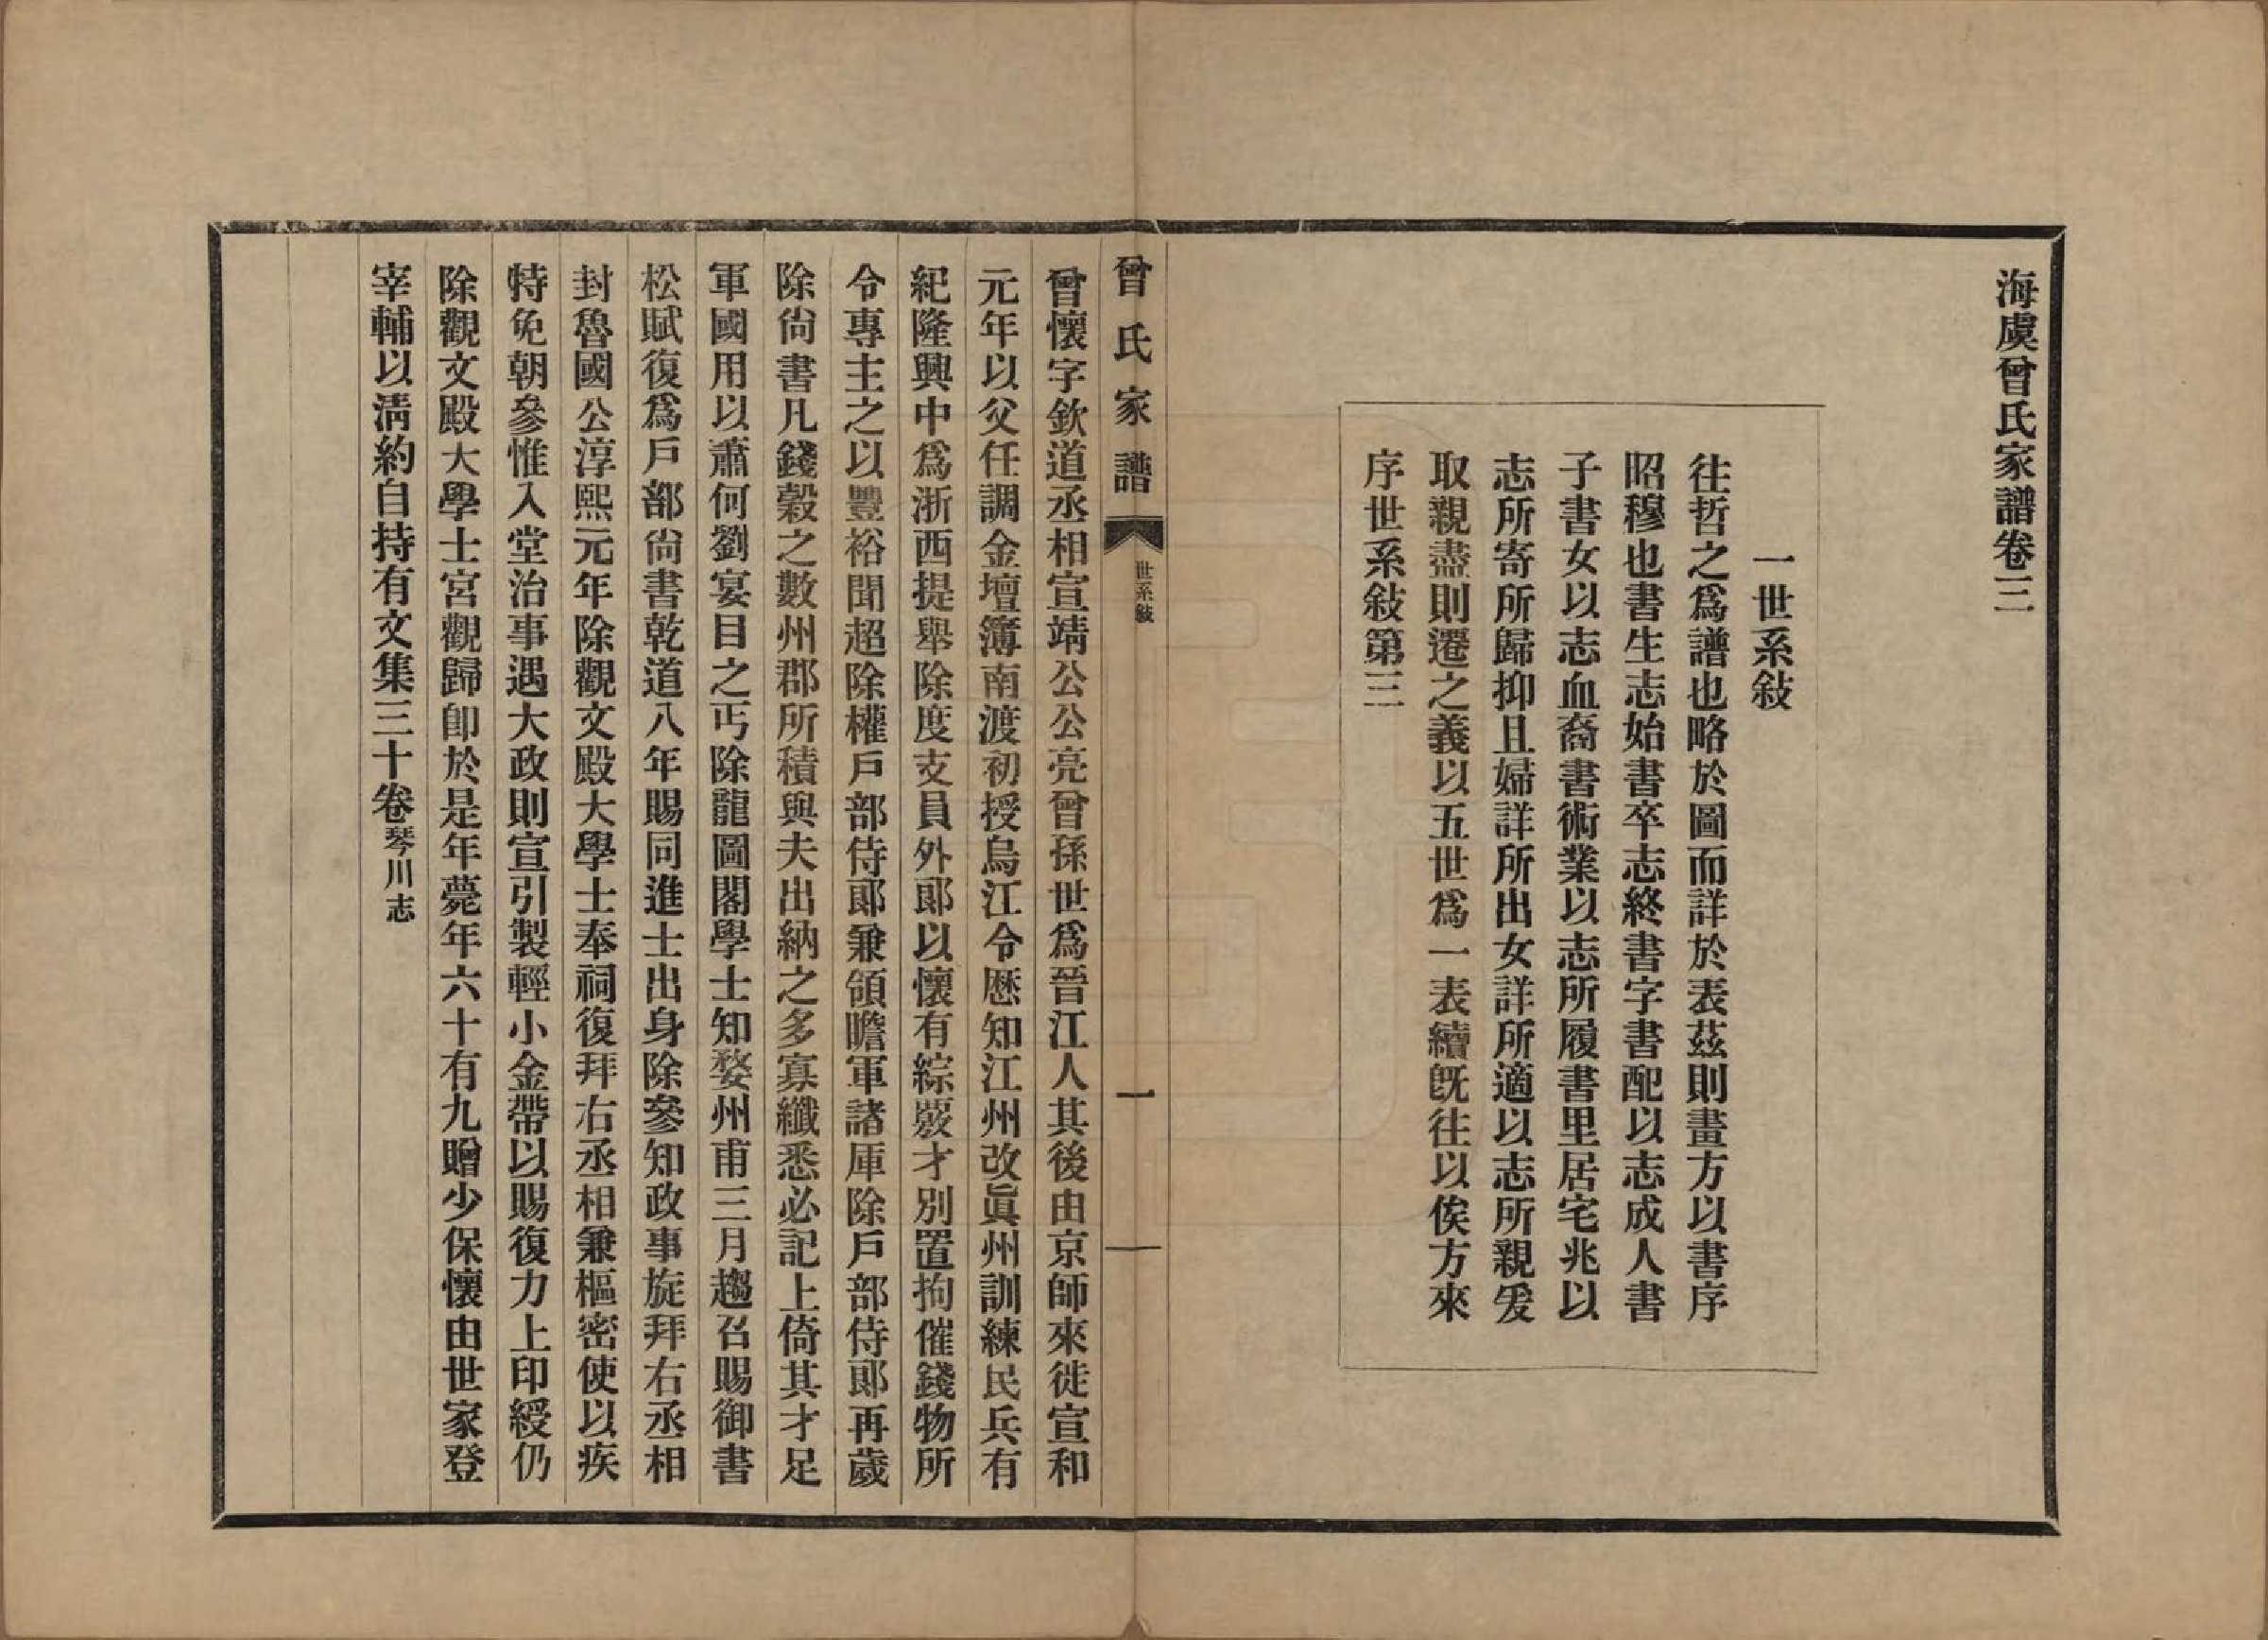 海虞曾氏家譜卷三
一世系敍
往哲之爲譜也略於圖而詳於表茲則畫方以書序
昭穆也書生志始書卒志終書字書配以志成人書
子書女以志血裔書術業以志所履書里居宅兆以
志所寄所歸抑且婦詳所出女詳所適以志所親爰
取親盡則遷之義以五世爲一表續旣往以俟方來
序世系敍第三
曾氏家譜
世系敍
一
曾懷字欽道丞相宣靖公公亮曾孫世爲晉江人其後由京師來徙宣和
元年以父任調金壇簿南渡初授烏江令歷知江州改眞州訓練民兵有
紀隆興中爲浙西提舉除度支員外郞以懷有綜覈才別置拘催錢物所
令專主之以豐裕聞超除權戶部侍郞兼領瞻軍諸庫除戶部侍郞再歲
除尙書凡錢穀之數州郡所積與夫出納之多寡纖悉必記上倚其才足
軍國用以蕭何劉宴目之丐除龍圖閣學士知婺州甫三月趨召賜御書
松賦復爲戶部尙書乾道八年賜同進士出身除參知政事旋拜右丞相
封魯國公淳熙元年除觀文殿大學士奉祠復拜右丞相兼樞密使以疾
特免朝參惟入堂治事遇大政則宣引製輕小金帶以賜復力上印綬仍
除觀文殿大學士宮觀歸卽於是年薨年六十有九贈少保懷由世家登
宰輔以淸約自持有文集三十卷琴川志